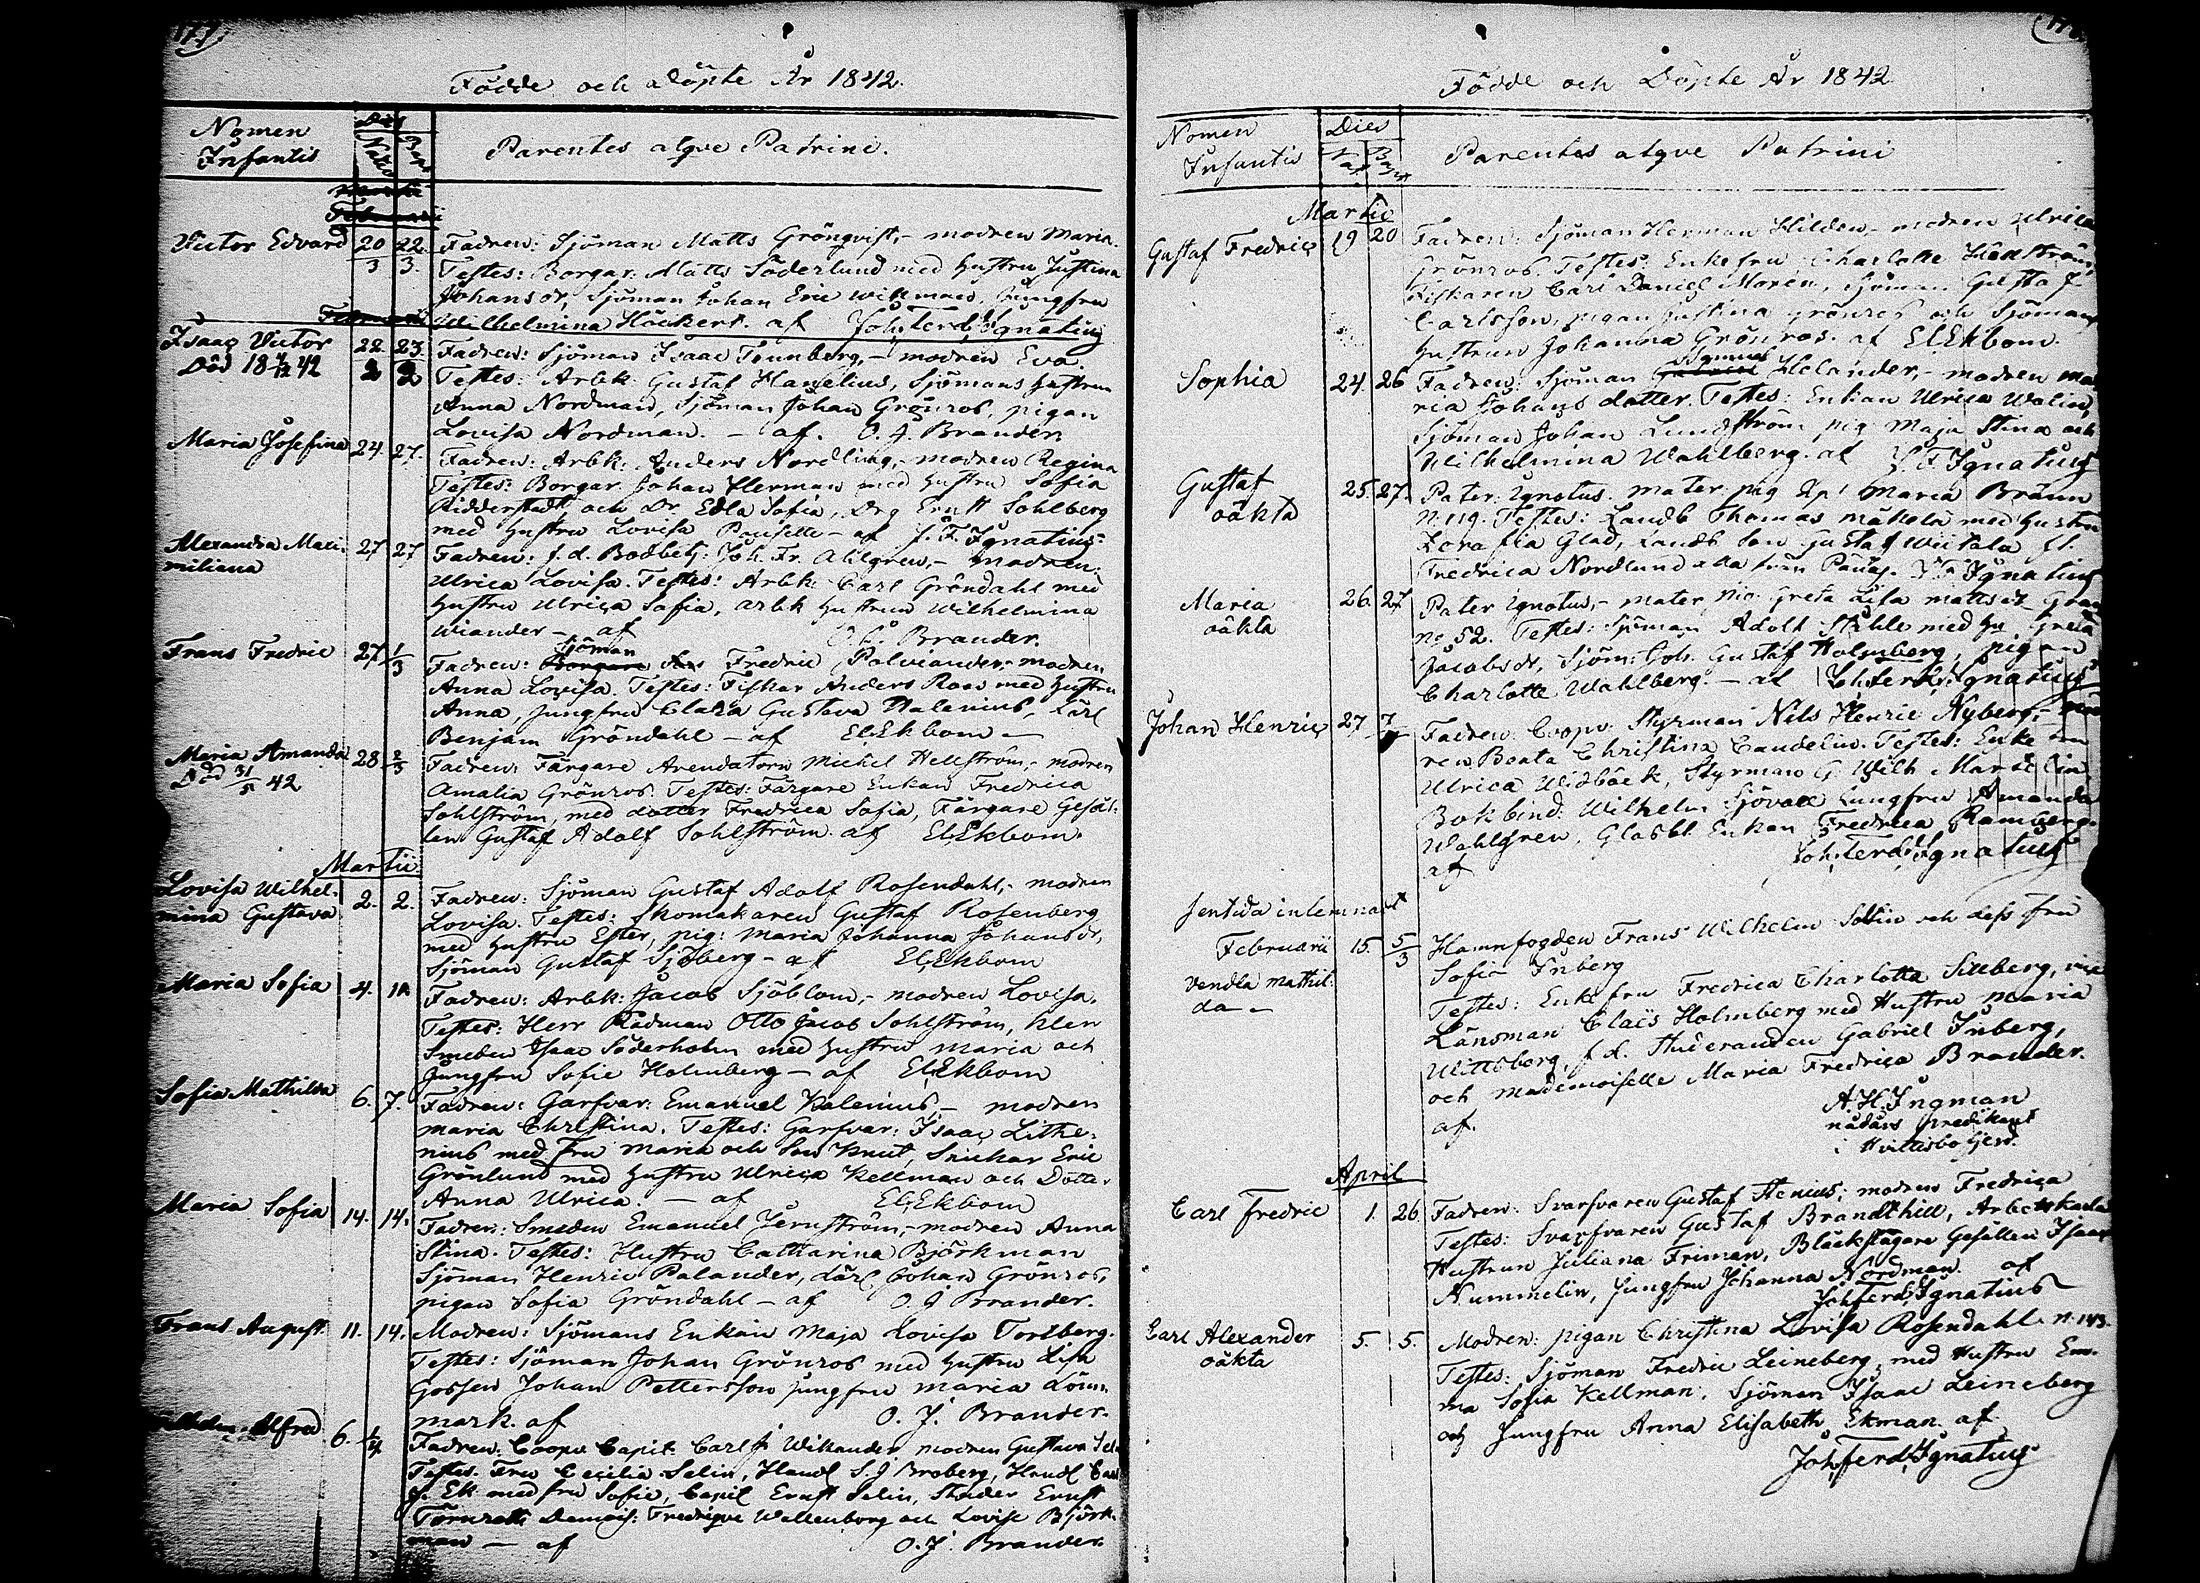 177
Födde och Döpte År 1842.
Nomen Infantis
Dies
Nat.
Bapt.
Parentes atqve Patrini.
Victor Edvard 20/3 22/3. Fadren: Sjöman Matts Grönqvist, - modren Maria.
Testes: Borgar. Matts Söderlund med hustru Justina
Johansdr, Sjöman Johan Eric Wikman, Jungfru
Wilhelmina Höckert. af Joh: Ferd: Ignatius
Isaac Victor 22/2 23/2 Fadren: Sjöman Isaac Tennberg, - modren Eva.
Död 18 42
Testes: Arbk: Gustaf Hanelius, Sjömans hustrun
Anna Nordman, Sjöman Johan Grönros, pigan
Lovisa Nordman. - af. O. J. Brander
Maria Josefina 24. 27. Fadren: Arbk: Anders Nordling, - modren Regina
Testes: Borgar. Johan Herman med hustru Sofia
Ridderstedt, och Dr. Edla Sofia, Drg Ernst Sohlberg
med hustru Lovisa - af J. F. Ignatius
Alexandra Maxi- 27 27 Fadren: f. d. Bodbetj: Joh. Fr. Ahlgren, - modren:
miliana
Ulrica Lovisa. Testes: Arbk: Carl Gröndahl med
hustru Ulrica Sofia, arbk hustrun Wilhelmina
Wiander - af O. J. Brander.
Frans Fredric 27 1/3 Fadren: Sjöman Fredric Polviander, - modren
Anna Lovisa. Testes: Fiskar Anders Roos med hustru
Anna, jungfru Clara Gustava Walenius, Lärl
Benjam Gröndahl - af El. Ekbom -
Maria Amanda 28 2/3 Fadren: Färgare Arendatorn Mickel Hellström, - modren
Död 42
Amalia Grönros. Testes: Färgare Enkan Fredrica
Sohlström, med dotter Fredrica Sofia, Färgare Gesäl-
len Gustaf Adolf Sohlström. af El. Ekbom.
Martii
Lovisa Wilhel- 2. 2. Fadren: Sjöman Gustaf Adolf Rosendahl, - modren
mina Gustava
Lovisa. Testes: Skomakaren Gustaf Rosenberg
med hustru Ester, pig: Maria Johanna Johansdr,
Sjöman Gustaf Sjöberg - af El. Ekbom
Maria Sofia 4. Fadren: Arbk: Jacob Sjöblom, - modren Lovisa.
Testes: Herr Rådman Otto Jacob Sohlström, Klen
Smeden Isaac Söderholm med hustru Maria och
Jungfru Sofie Holmberg - af El. Ekbom
Sofia Mathilda 6. 7. Fadren: Garfvar: Emanuel Valenius, - modren
Maria Christina. Testes: Garfvar: Isaac Lithe-
nius med fru Maria och Son Knut, Snickar Eric
Grönlund med hustru Ulrica Kellman och Dotter
Anna Ulrica. - af El. Ekbom
Maria Sofia 14. 14. Fadren: Smeden Emanuel Jernström, - modren Anna
Stina. Testes: Hustru Catharina Björkman
Sjöman Henric Palander, Lärl Johan Grönros,
pigan Sofia Gröndahl - af O. J. Brander.
Frans August. 11. 14. Modren: Sjömans Enkan Maja Lovisa Torsberg.
Testes: Sjöman Johan Grönros med hustru Lisa
Gossen Johan Pettersson jungfru Maria Lönn-
mark. af O. J. Brander.
Alfred 6. 1/4 Fadren: Coopv. Capit: Carl J. Wikander modren Gustava
Testes. Fru Cecilia Selin, Handl S. J Broberg, Handl Carl
J. Ek med fru Sofie, Capit Ernst Selin, Studer Ernst
Törnroth Demois: Fredriqve Wallenborg och Lovise Björk-
man - af O. J. Brander.
Födde och Döpte År 1842
Nomen Infantis
Dies
Nat.
Bapt
Parentes atqve Patrini
Martii
Gustaf Fredric 19 20 Fadren: Sjöman Herman Hilden, - modren Ulrica
Grönros. Testes: Enkefru Charlotte Hellström,
Fiskaren Carl Daniel Morén, Sjöman Gustaf
Carlsson, pigan Justina Grönros och Sjömans
hustrun Johanna Grönros. af El. Ekbom.
Sophia 24. 26 Fadren: Sjöman Helander, - modren Ma
ria Johans dotter. Testes: Enkan Ulrica Walin,
Sjöman Johan Lundström pig Maja Stina och
Wilhelmina Wahlberg. af J. F. Ignatius
Gustaf 25. 27 Pater: Ignotus. Mater: pig Maria Brunn
oäkta
N: 119. Testes: Landb Thomas Mäkelä med hustru
Glad, Landb Son Gustaf Wiitala
Fredrica Nordlund alla från J F Ignatius
Maria 26. 27 Pater Ignotus, - mater pig. Greta Lisa Mattsdr
oäkta
No 52. Testes: Sjöman Adolf Ståhle med hu Greta
Jacobsdr, Sjöm: Joh. Gustaf Holmberg, pigan
Charlotte Wahlberg. - af Joh: Ferd: Ignatius
Johan Henric 27 Fadren: Coopv. Styrman Nils Henric Nyberg, - mod
ren Beata Christina Candelin. Testes: Enke fru
Ulrica Widbäck, Styrman G. Wilh Martelin,
Bokbind: Wilhelm Sjövall Jungfru Amanda
Wahlgren, Glasb: Enkan Fredrica Ramberg.
af Joh: Ferd: Ignatius
Februarii 15. 5/3 Hamnfogden Frans Wilhelm Sallin och dess fru
Vendla Mathil-
da -
Sofia Inberg
Testes: Enkefru Fredrica Charlotta Sucberg, vice
Länsman Claës Holmberg med Hustru Maria
Wittsberg, f. d. Studeranden Gabriel Inberg,
och mademoiselle Maria Fredrica Brander.
af. A. H. Ingman
nådårs predikant
i Hvittisbofjerd.
April
Carl Fredric 1. 26 Fadren: Svarfvaren Gustaf Stenius; modren Fredrica
Testes: Svarfvaren Gustaf Brandthill, Arbetskarls
Hustrun Juliana Friman, Bläckslagare Gesällen Isaac
Nummelin, Jungfru Johanna Nordman. af
Joh: Ferd: Ignatius
Carl Alexander 5. 5. Modren: pigan Christina Lovisa Rosendahl. N. 143.
oäkta
Testes: Sjöman Fredric Leineberg, med Hustru Em-
ma Sofia Kellman. Sjöman Isaac Leineberg
och Jungfru Anna Elisabeth Ekman. af
Joh: Ferd: Ignatius